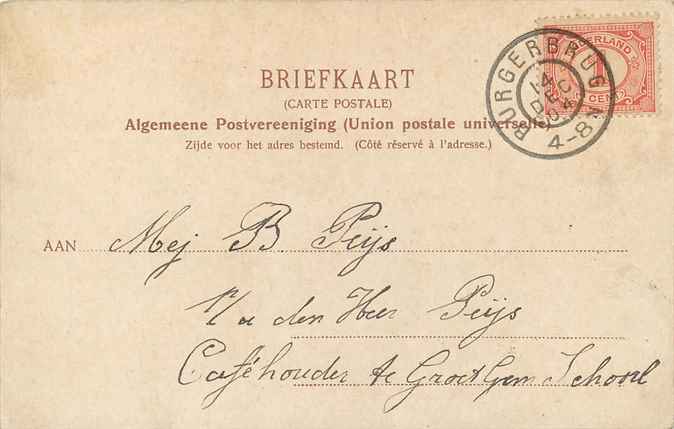 BRIEFKAART
(CARTE POSTALE)
Algemeene Postvereeniging (Union postale universelle)
Zijde voor het adres bestemd. (Côté réservé à l'adresse.)
BURGERBRUG
14
DEC
04
4-8N
NEDERLAND
CENT
AAN Mej B. Puijs
p/a den Heer Puijs
Caféhouder te Groet Gem Schoorl